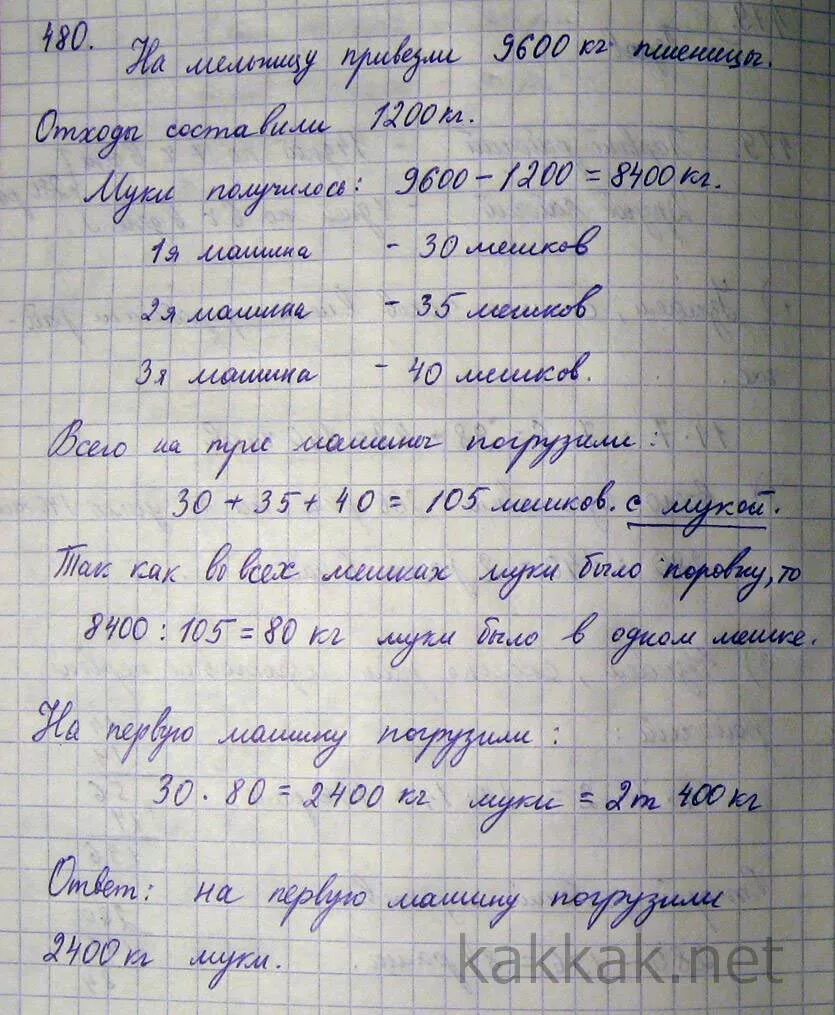 480.
На мельницу привезли 9600 кг пшеницы.
Отходы составили 1200 кг.
Муки получилось: 9600 - 1200 = 8400 кг.
1я машина - 30 мешков
2я машина - 35 мешков
3я машина - 40 мешков.
Всего на три машины погрузили:
30 + 35 + 40 = 105 мешков. с мукой.
Так как во всех мешках муки было поровну, то
8400 : 105 = 80 кг муки было в одном мешке.
На первую машину погрузили:
30 · 80 = 2400 кг муки = 2т 400 кг
Ответ: на первую машину погрузили
2400 кг муки.
kakkak.net